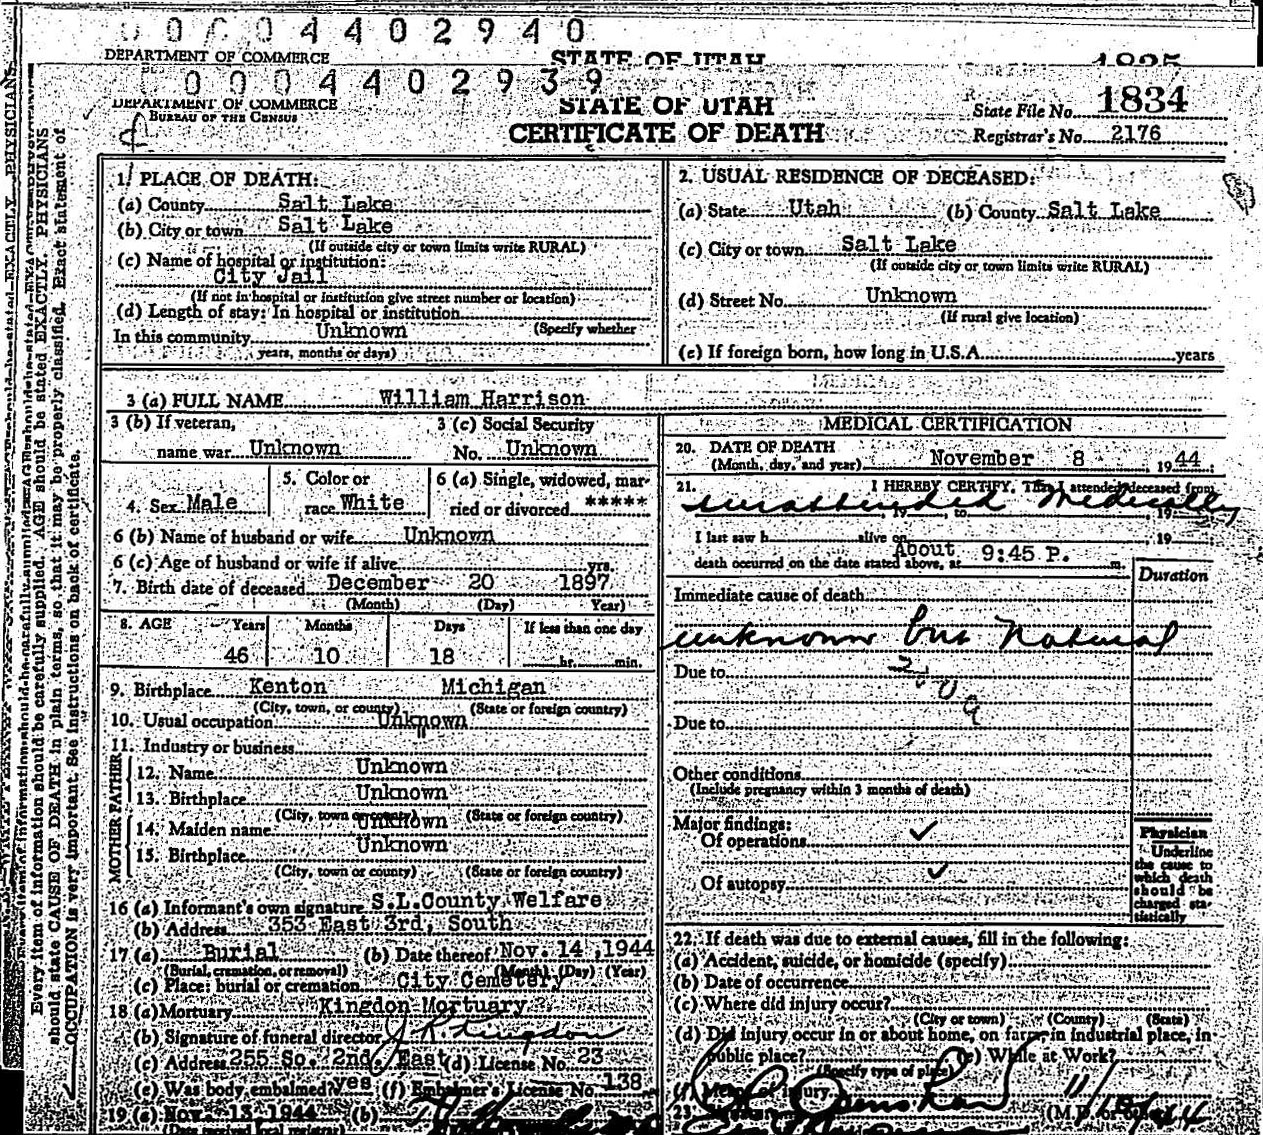 0004402940
DEPARTMENT OF COMMERCE STATE OF UTAH 1835
0004402939
DEPARTMENT OF COMMERCE
BUREAU OF THE CENSUS
STATE OF UTAH
CERTIFICATE OF DEATH
State File No. 1834
Registrar's No. 2176
Every item of information should be carefully supplied. AGE should be stated EXACTLY. PHYSICIANS
should state CAUSE OF DEATH in plain terms, so that it may be properly classified. Exact statement of
OCCUPATION is very important. See instructions on back of certificate.
1. PLACE OF DEATH:
(a) County Salt Lake
(b) City or town Salt Lake
(If outside city or town limits write RURAL)
(c) Name of hospital or institution:
City Jail
(If not in hospital or institution give street number or location)
(d) Length of stay: In hospital or institution
(Specify whether
In this community Unknown
years, months or days)
2. USUAL RESIDENCE OF DECEASED:
(a) State Utah (b) County Salt Lake
(c) City or town Salt Lake
(If outside city or town limits write RURAL)
(d) Street No. Unknown
(If rural give location)
(e) If foreign born, how long in U.S.A. years
3 (a) FULL NAME William Harrison
3 (b) If veteran,
name war Unknown
3 (c) Social Security
No. Unknown
4. Sex Male
5. Color or
race White
6 (a) Single, widowed, mar-
ried or divorced *****
6 (b) Name of husband or wife Unknown
6 (c) Age of husband or wife if alive yrs.
7. Birth date of deceased December 20 1897
(Month) (Day) Year)
8. AGE Years Months Days If less than one day
46 10 18 hr. min.
9. Birthplace Kenton Michigan
(City, town, or county) (State or foreign country)
10. Usual occupation Unknown
11. Industry or business "
FATHER
12. Name Unknown
13. Birthplace Unknown
(City, town or county) (State or foreign country)
MOTHER
14. Maiden name Unknown
15. Birthplace Unknown
(City, town or county) (State or foreign country)
16 (a) Informant's own signature S.L.County Welfare
(b) Address 353 East 3rd, South
17 (a) Burial (b) Date thereof Nov. 14, 1944
(Burial, cremation, or removal) (Month) (Day) (Year)
(c) Place: burial or cremation City Cemetery
18 (a) Mortuary Kingdon Mortuary
(b) Signature of funeral director
(c) Address 255 So. 2nd East (d) License No. 23
(e) Was body embalmed? yes (f) Embalmer's License No. 138
19 (a) Nov. 13, 1944 (b)
(Date received local registrar)
MEDICAL CERTIFICATION
20. DATE OF DEATH
(Month, day, and year) November 8 1944
21. I HEREBY CERTIFY, That I attended deceased from
unattended Medically
19 to 19
I last saw h alive on 19
death occurred on the date stated above, at About 9:45 P. m.
Duration
Immediate cause of death
unknown but Natural
Due to
Due to
Other conditions
(Include pregnancy within 3 months of death)
Major findings:
Of operations ✓
Of autopsy ✓
Physician
Underline
the cause to
which death
should be
charged sta-
tistically
22. If death was due to external causes, fill in the following:
(a) Accident, suicide, or homicide (specify)
(b) Date of occurrence
(c) Where did injury occur?
(City or town) (County) (State)
(d) Did injury occur in or about home, on farm, in industrial place, in
public place? (e) While at Work?
(Specify type of place)
(f) Means of injury
23.